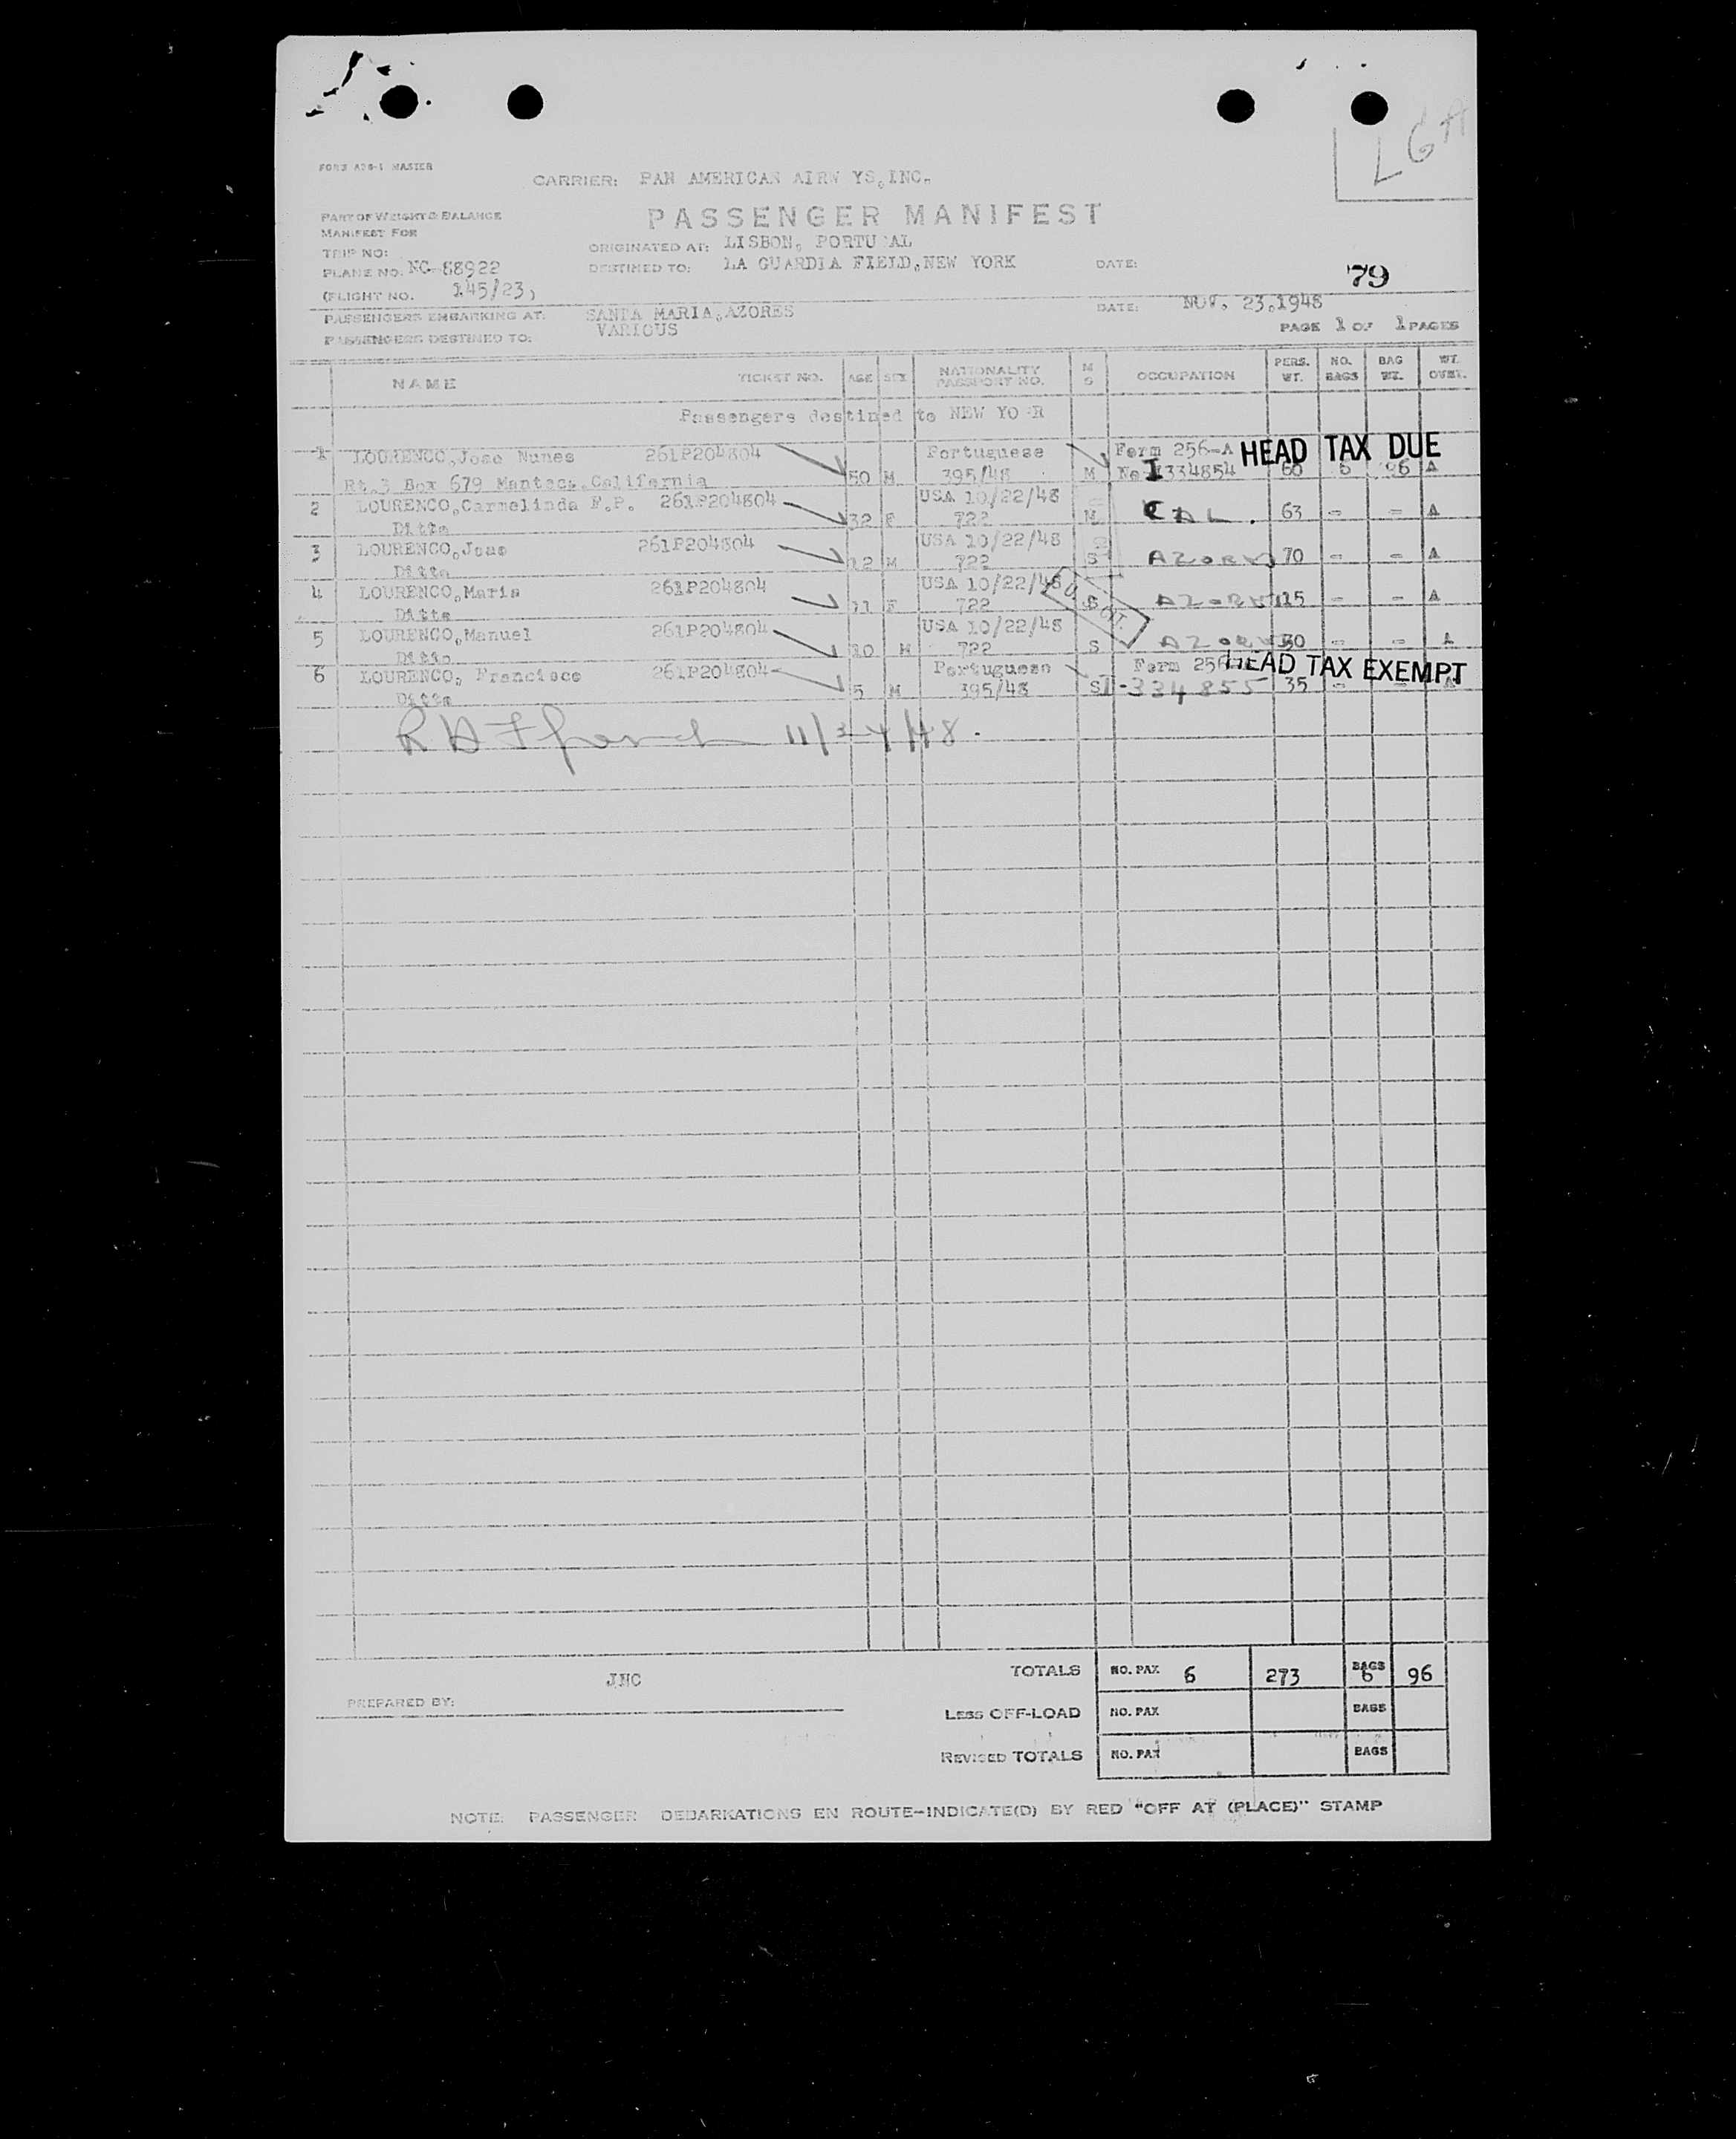 LGA
FORM A20-1 MASTER
CARRIER: PAN AMERICAN AIRW YS, INC.
PART OF WEIGHT & BALANCE
MANIFEST FOR
PASSENGER MANIFEST
TRIP NO:
ORIGINATED AT: LISBON, PORTU AL
PLANE NO. NC-88922
DESTINED TO: LA GUARDIA FIELD, NEW YORK DATE:
79
(FLIGHT NO. 145/23)
PASSENGERS EMBARKING AT: SANTA MARIA, AZORES DATE: NOV. 23, 1948
PASSENGERS DESTINED TO: VARIOUS PAGE 1 OF 1 PAGES
NAME TICKET NO. AGE SEX NATIONALITY PASSPORT NO. M S OCCUPATION PERS. WT. NO. BAGS BAG WT. WT. OVER.
Passengers destined to NEW YO R
1 LOURENCO, Jose Nunes 261P204804 Portuguese Form 256-A HEAD TAX DUE
Rt. 3 Box 679 Manteca, California 50 M 395/48 M No I 334854 60 6 96 A
2 LOURENCO, Carmelinda F.P. 261P204804 USA 10/22/48
Ditto 32 F 722 M CAL. 63 - - A
3 LOURENCO, Joao 261P204804 USA 10/22/48
Ditto 12 M 722 S AZORES 70 - - A
4 LOURENCO, Maria 261P204804 USA 10/22/48
Ditto 11 F 722 S AZORES 15 - - A
5 LOURENCO, Manuel 261P204804 USA 10/22/48
Ditto 10 M 722 S AZORES 30 - - A
6 LOURENCO, Francisco 261P204804 Portuguese Form 256 HEAD TAX EXEMPT
Ditto 5 M 395/48 S I-334855 35 - - A
11/24/48.
TOTALS NO. PAX 6 273 BAGS 6 96
JNC
PREPARED BY:
LESS OFF-LOAD NO. PAX BAGS
REVISED TOTALS NO. PAX BAGS
NOTE: PASSENGER DEBARKATIONS EN ROUTE-INDICATE(D) BY RED "OFF AT (PLACE)" STAMP